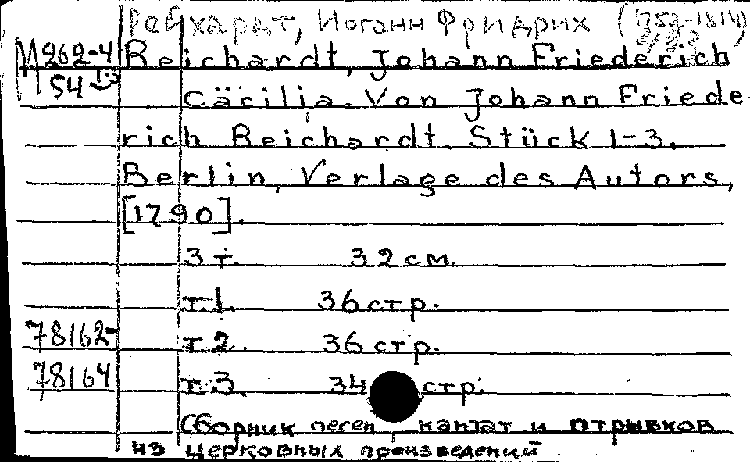 Рейхардт, Иоганн Фридрих (1752-1814)
М 262-4 Reichardt, Johann Friederich
54 Cäcilia. Von Johann Friede-
rich Reichardt. Stück 1-3.
Berlin, Verlage des Autors,
[1790].
3 т. 32 см.
т.1. 36 стр.
78162- т.2. 36 стр.
78164 т.3. 34 стр.
Сборник песен, кантат и отрывков
из церковных произведений